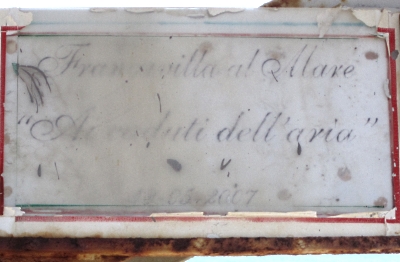 Francavilla al Mare
"Ai caduti dell'aria"
05.2007